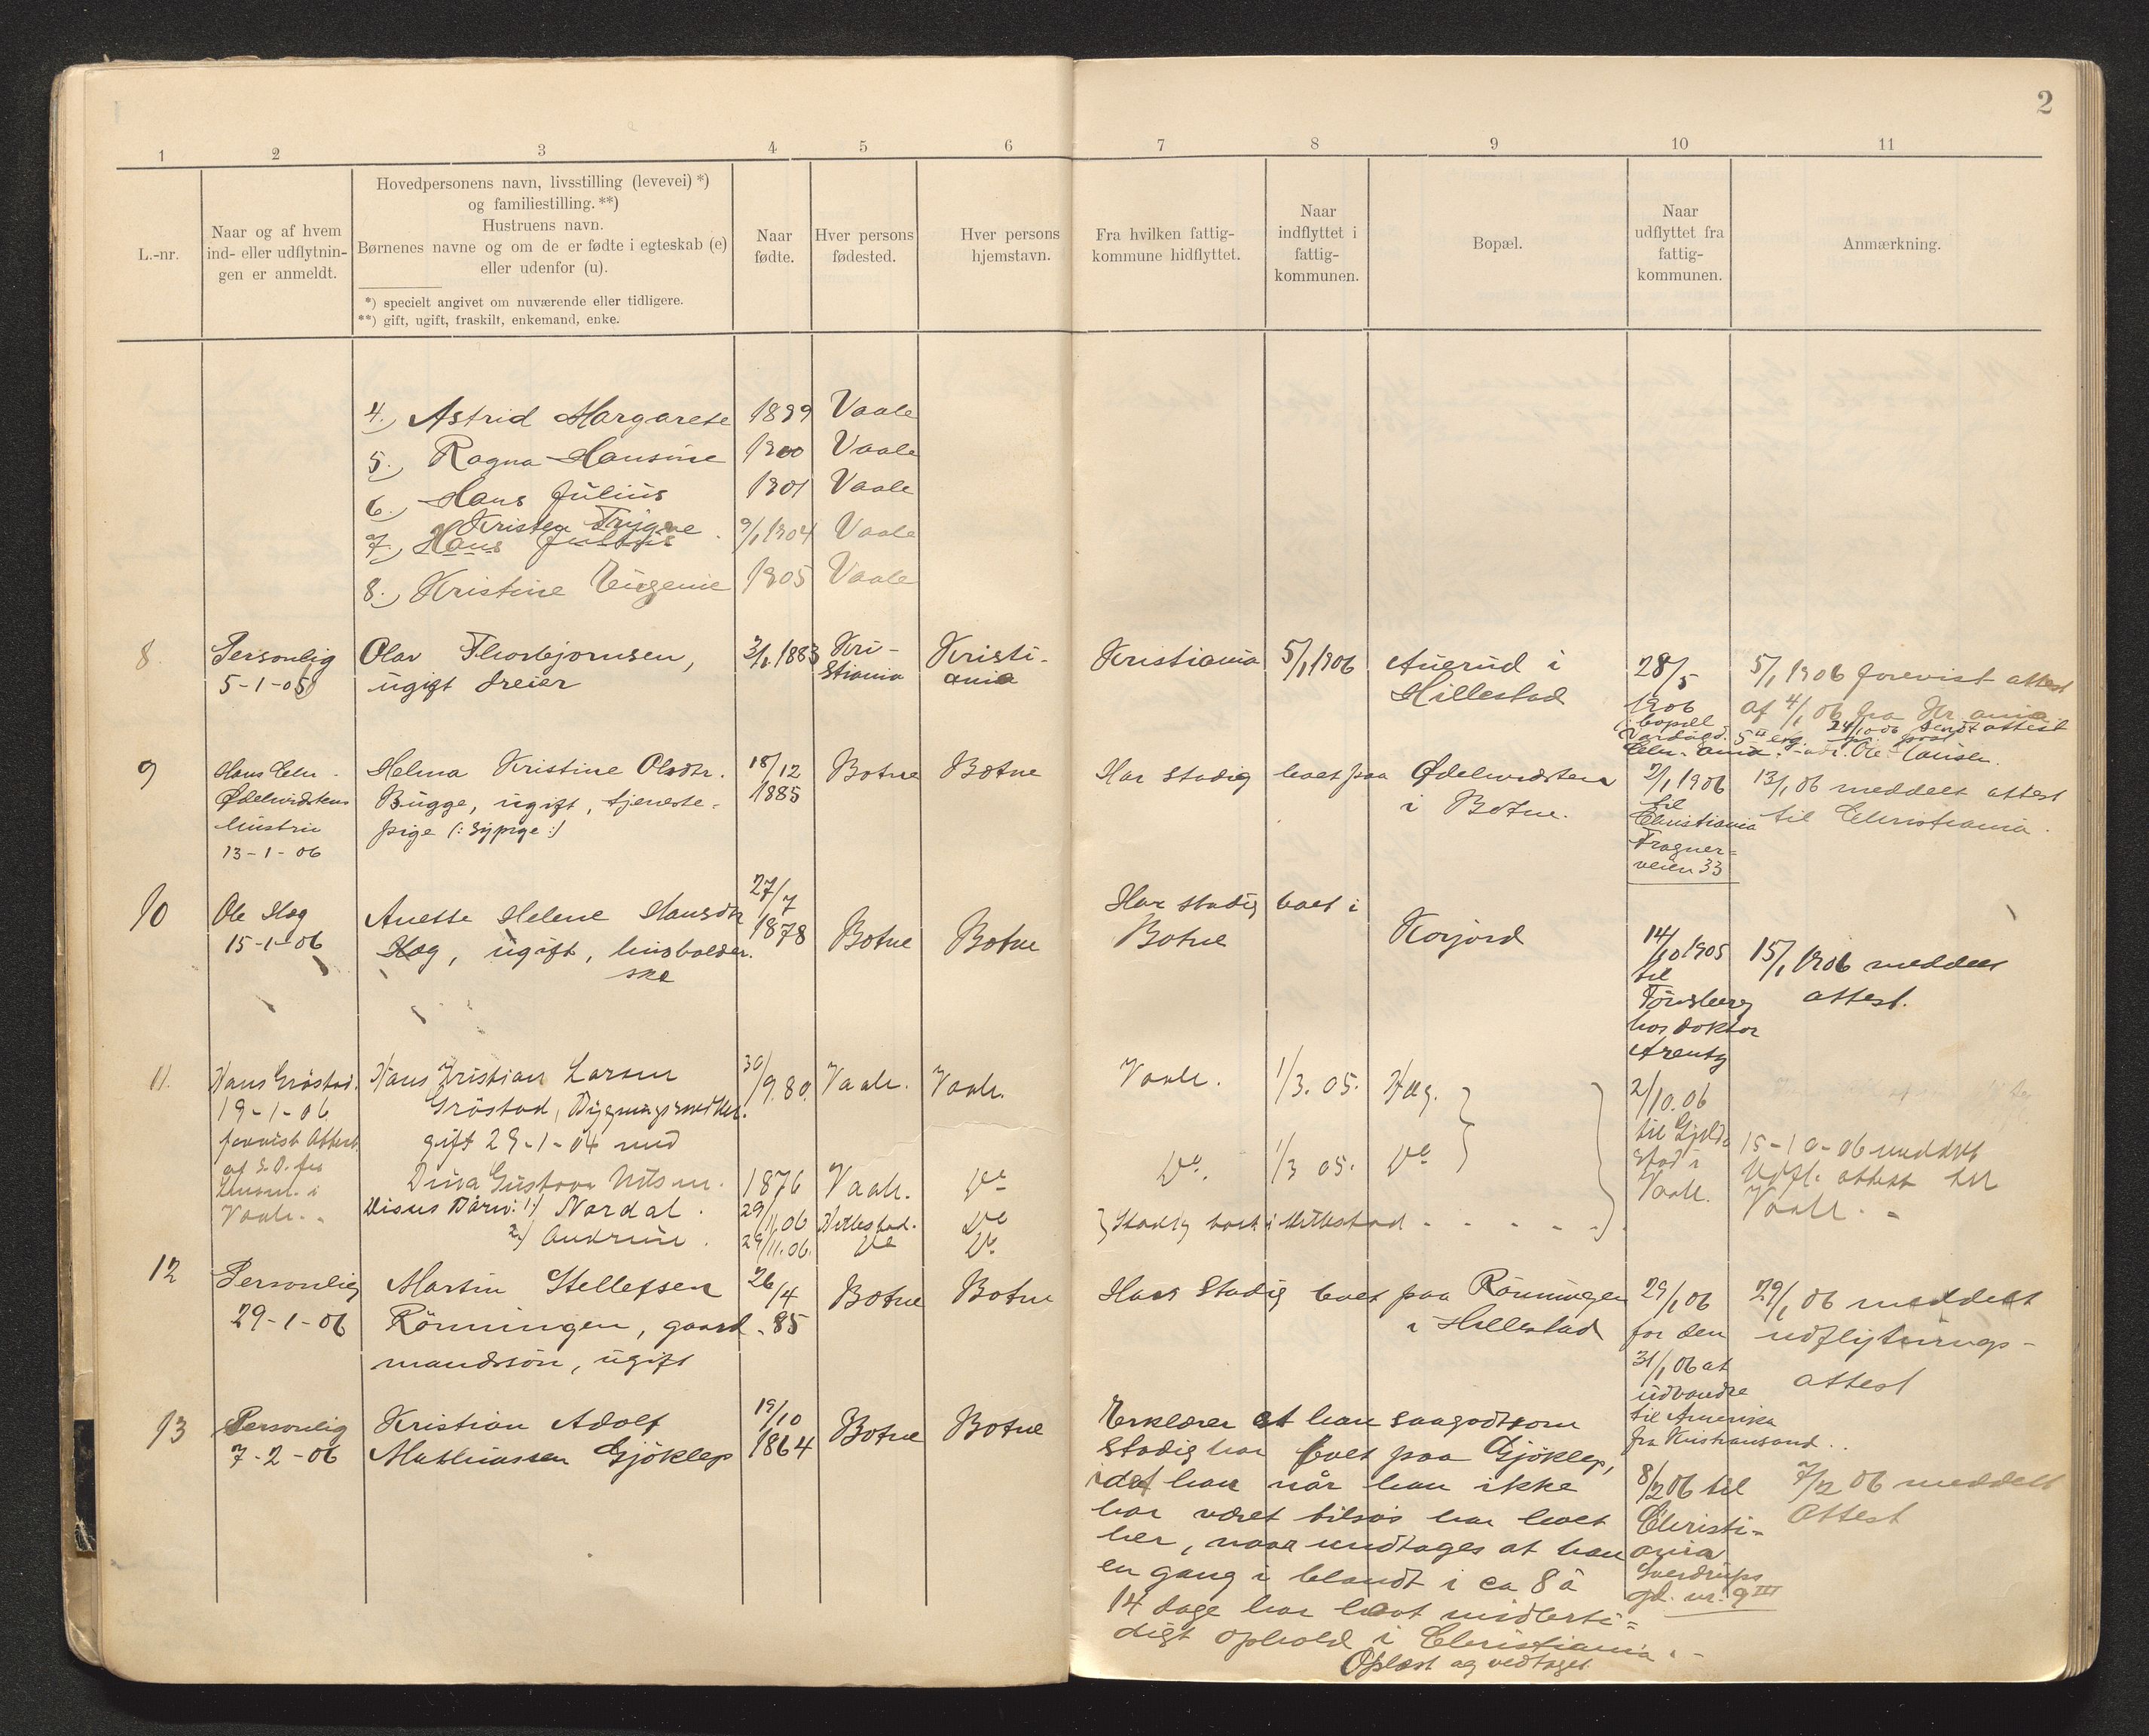 2
1 2 3 4 5 6 7 8 9 10 11
L.-nr.
Naar og af hvem
ind- eller udflytnin-
gen er anmeldt.
Hovedpersonens navn, livsstilling (levevei) *)
og familiestilling. **)
Hustruens navn.
Børnenes navne og om de er fødte i egteskab (e)
eller udenfor (u).
*) specielt angivet om nuværende eller tidligere.
**) gift, ugift, fraskilt, enkemand, enke.
Naar
fødte.
Hver persons
fødested.
Hver persons
hjemstavn.
Fra hvilken fattig-
kommune hidflyttet.
Naar
indflyttet i
fattig-
kommunen.
Bopæl.
Naar
udflyttet fra
fattig-
kommunen.
Anmærkning.
4.) Astrid Margarete 1899 Vaale
5.) Ragna Hansine 1900 Vaale
6.) Hans Julius 1901 Vaale
Kristen Trygve
7.) Hans Julius 9/1 1904 Vaale
8.) Kristine Eugenie 1905 Vaale
8.
Personlig
5-1-05
Olav Thorbjørnsen,
ugift dreier
3/8 1883
Kri-
stiania
Kristi-
ania
Kristiania
5/1 1906
Auerud i
Hillestad
28/5
1906
bopæl
5/1 1906 forevist attest
af 4/1 06 fra Kr.ania
24/10 06 sendt attest
9
Hans Chr.
Ødelvidstens
hustru
13-1-06
Helma Kristine Olsdtr.
Bugge, ugift, tjeneste-
pige (: sypige :)
18/12
1885
Botne
Botne
Har stadig boet paa Ødelvidsten
i Botne.
2/1 1906
til
Christiania
Frogner-
veien 33
13/1 06 meddelt attest
til Christiania.
10
Ole Høg
15-1-06
Anette Helene Hansdtr
Høg, ugift, husholder-
ske
27/7
1878
Botne
Botne
Har stadig boet i
Botne
Korjord
14/10 1905
til
Tønsberg
hos doktor
Arentz
15/1 1906 meddelt
attest.
11.
Hans Grøstad.
19-1-06
forevist Attest
af S.D. fra
Lensm. i
Vaale.
Hans Kristian Larsen
Grøstad, Bygningssnedker.
gift 29-1-04 med
Dina Gustava Nilsen.
Disses Børn: 1) Nordal.
2) Andrine.
30/9. 80.
1876
29/11.06
29/11.06.
Vaale.
Vaale.
Hillestad.
Do
Vaale.
Do
Do
Do
Vaale.
Do.
1/3. 05.
1/3 05.
Høg.
Do
Stadig boet i Hillestad
2/10.06
til Gjelde
stad i
Vaale.
15-10-06 meddelt
Udfl. attest til
Vaale.
12
Personlig
29-1-06
Martin Stellefsen
Rønningen, gaard-
mandssøn, ugift
26/4
85
Botne
Botne
Har Stadig boet paa Rønningen
i Hillestad
29/1 06
for den
31/1 06 at
udvandre
til Amerika
fra Kristiansand.
29/1 06 meddelt
udflytnings-
attest
13
Personlig
7-2-06
Kristian Adolf
Mathiassen Gjøklep
19/10
1864
Botne
Botne
Erklærer at han saagodtsom
stadig har boet paa Gjøklep,
idet han når han ikke
har været tilsjøs har boet
her, naar undtages at han
en gang i blandt i ca 8 á
14 dage har havt midlerti-
digt ophold i Christiania.
Oplæst og vedtaget
8/2 06 til
Christi-
ania
Sverdrups
gd. nr. 9 III
7/2 06 meddelt
Attest